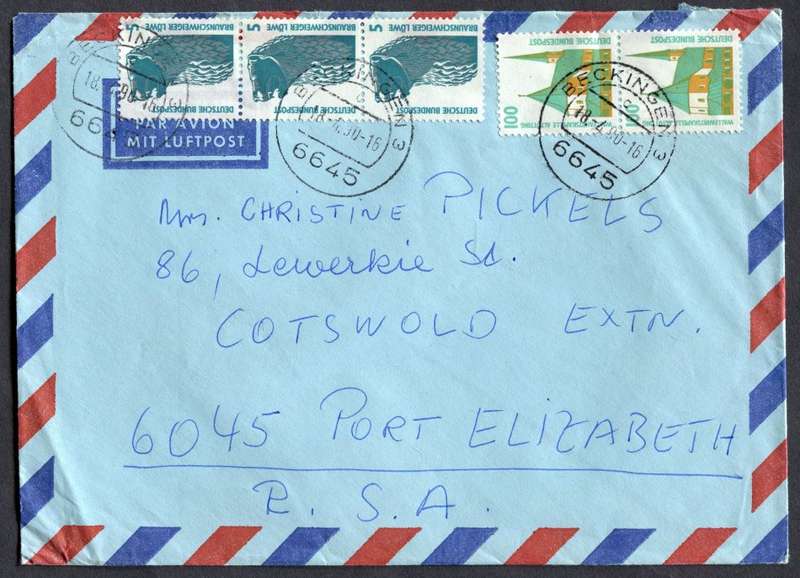 5 BRAUNSCHWEIGER LÖWE DEUTSCHE BUNDESPOST
5 BRAUNSCHWEIGER LÖWE DEUTSCHE BUNDESPOST
5 BRAUNSCHWEIGER LÖWE DEUTSCHE BUNDESPOST
DEUTSCHE BUNDESPOST 100
DEUTSCHE BUNDESPOST WALLFAHRTSKAPELLE
6645
BECKINGEN 3
18.-4.90-16
6645
PAR AVION
MIT LUFTPOST
Mrs. CHRISTINE PICKELS
86, Lewerkie St.
COTSWOLD EXTN.
6045 PORT ELIZABETH
R.S.A.